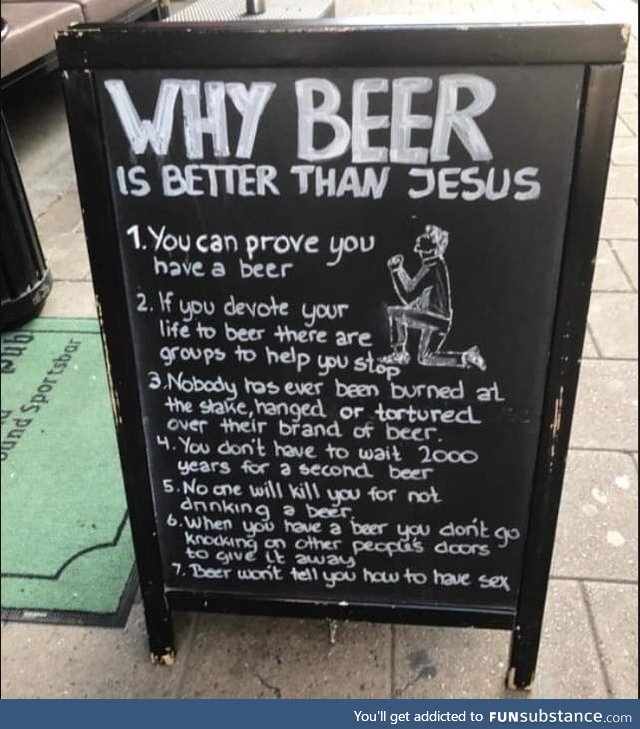 WHY BEER
IS BETTER THAN JESUS
1. You can prove you
have a beer
2. If you devote your
life to beer there are
groups to help you stop
3. Nobody has ever been burned at
the stake, hanged or tortured
over their brand of beer.
4. You don't have to wait 2000
years for a second beer
5. No one will kill you for not
drinking a beer.
6. When you have a beer you don't go
knocking on other people's doors
to give it away
7. Beer won't tell you how to have sex
und Sportsbar
You'll get addicted to FUNsubstance.com